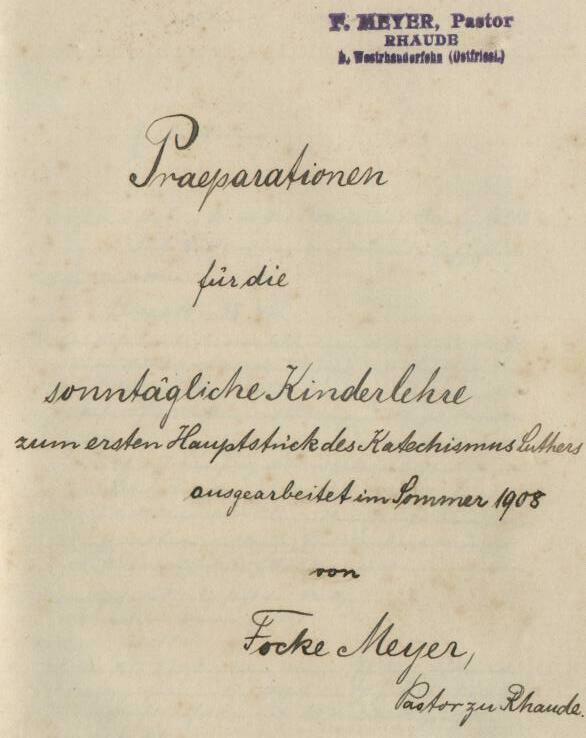 F. MEYER, Pastor
RHAUDE
b. Westrhauderfehn (Ostfriesl.)
Praeparationen
für die
sonntägliche Kinderlehre
zum ersten Hauptstück des Katechismus Luthers
ausgearbeitet im Sommer 1908
von
Focke Meyer,
Pastor zu Rhaude.